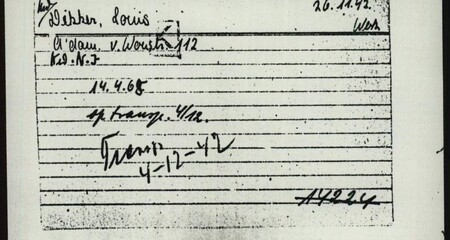 Dekker, Louis 26.11.42
West.
A'dam. v. Woustr. 112
14.4.68
op transp. 4/12.
Transp
4-12-42
14224